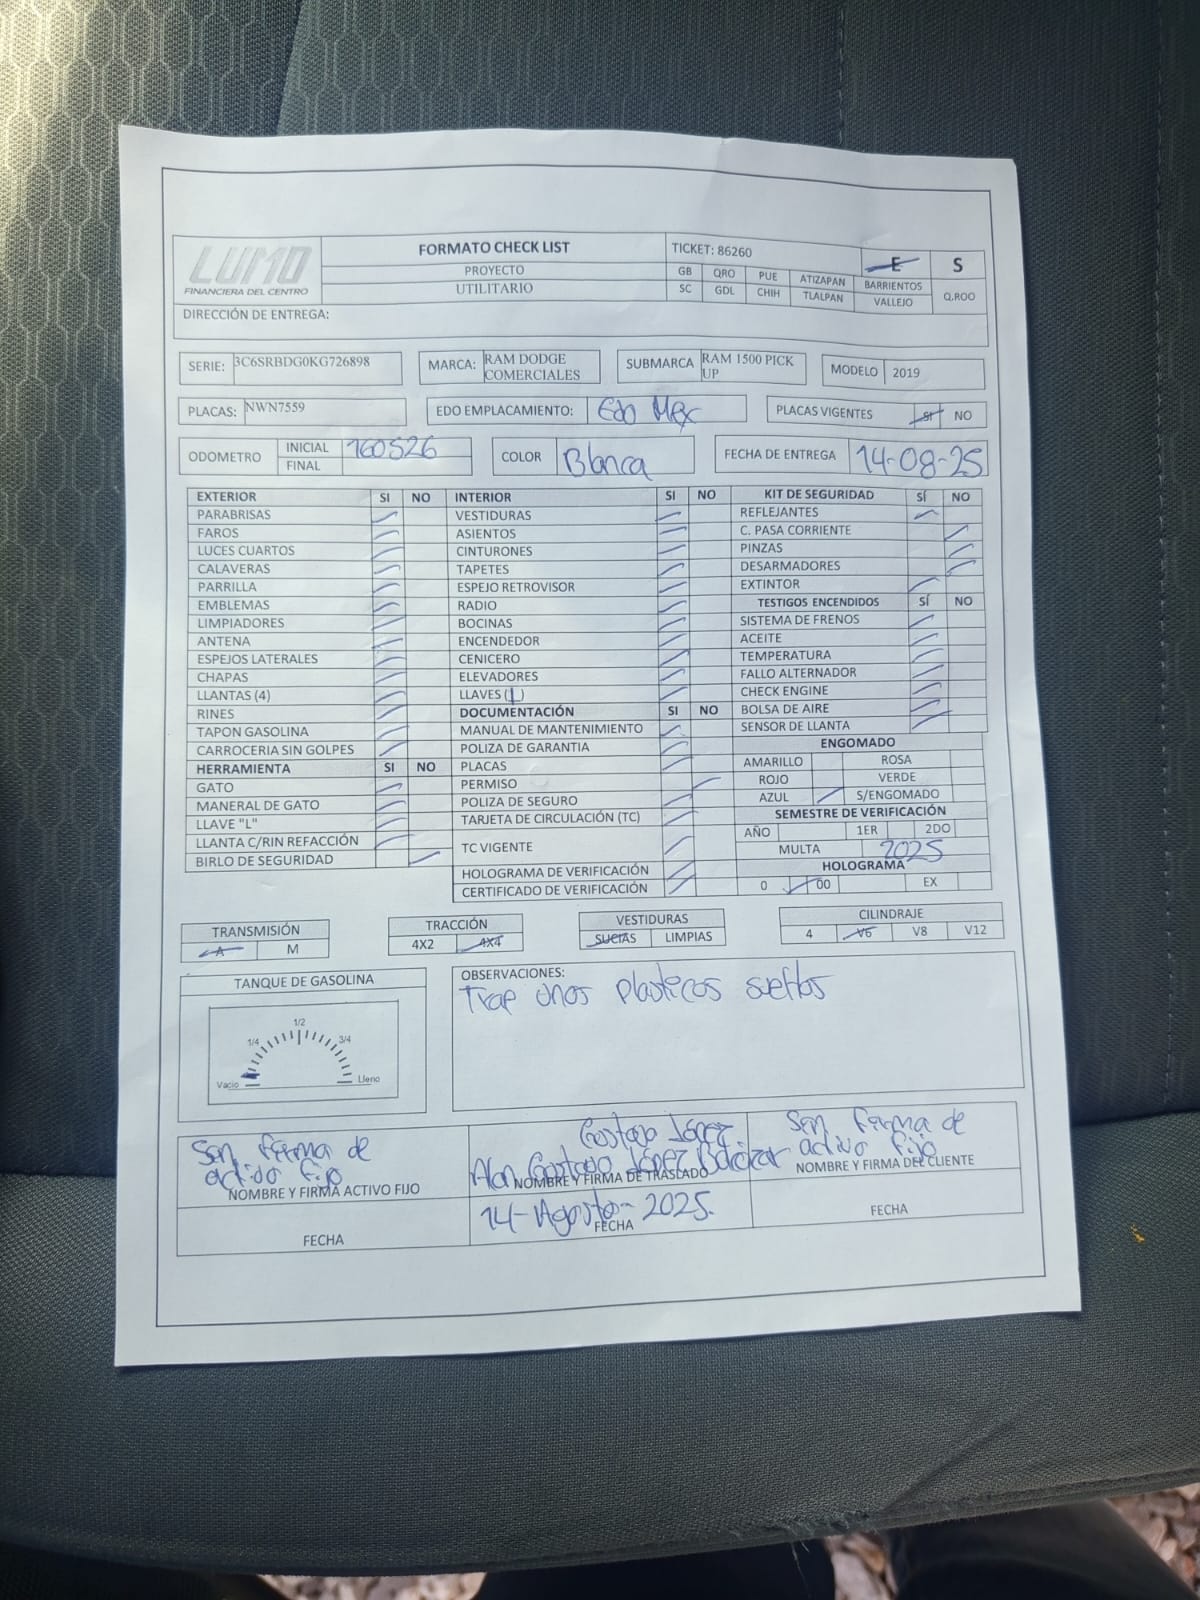 LUMO
FINANCIERA DEL CENTRO
FORMATO CHECK LIST
PROYECTO
UTILITARIO
TICKET: 86260
E S
GB QRO PUE ATIZAPAN BARRIENTOS
SC GDL CHIH TLALPAN VALLEJO Q.ROO
DIRECCIÓN DE ENTREGA:
SERIE: 3C6SRBDG0KG726898 MARCA: RAM DODGE COMERCIALES SUBMARCA RAM 1500 PICK UP MODELO 2019
PLACAS: NWN7559 EDO EMPLACAMIENTO: Edo Mex PLACAS VIGENTES SI NO
ODOMETRO INICIAL 160526 COLOR Blanca FECHA DE ENTREGA 14-08-25
FINAL
EXTERIOR SI NO INTERIOR SI NO KIT DE SEGURIDAD SÍ NO
PARABRISAS VESTIDURAS REFLEJANTES
FAROS ASIENTOS C. PASA CORRIENTE
LUCES CUARTOS CINTURONES PINZAS
CALAVERAS TAPETES DESARMADORES
PARRILLA ESPEJO RETROVISOR EXTINTOR
EMBLEMAS RADIO TESTIGOS ENCENDIDOS SÍ NO
LIMPIADORES BOCINAS SISTEMA DE FRENOS
ANTENA ENCENDEDOR ACEITE
ESPEJOS LATERALES CENICERO TEMPERATURA
CHAPAS ELEVADORES FALLO ALTERNADOR
LLANTAS (4) LLAVES (1) CHECK ENGINE
RINES DOCUMENTACIÓN SI NO BOLSA DE AIRE
TAPON GASOLINA MANUAL DE MANTENIMIENTO SENSOR DE LLANTA
CARROCERIA SIN GOLPES POLIZA DE GARANTIA ENGOMADO
HERRAMIENTA SI NO PLACAS AMARILLO ROSA
GATO PERMISO ROJO VERDE
MANERAL DE GATO POLIZA DE SEGURO AZUL S/ENGOMADO
LLAVE "L" TARJETA DE CIRCULACIÓN (TC) SEMESTRE DE VERIFICACIÓN
LLANTA C/RIN REFACCIÓN TC VIGENTE AÑO 1ER 2DO
BIRLO DE SEGURIDAD MULTA 2025
HOLOGRAMA DE VERIFICACIÓN HOLOGRAMA
CERTIFICADO DE VERIFICACIÓN 0 00 EX
TRANSMISIÓN TRACCIÓN VESTIDURAS CILINDRAJE
A M 4X2 4X4 SUCIAS LIMPIAS 4 V6 V8 V12
TANQUE DE GASOLINA
1/2
1/4 3/4
Vacio Lleno
OBSERVACIONES:
Trae unos plasticos sueltos
Sin firma de activo fijo
NOMBRE Y FIRMA ACTIVO FIJO
FECHA
Gustavo López
Alan Gustavo López
NOMBRE Y FIRMA DE TRASLADO
14-Agosto-2025.
FECHA
Sin firma de activo fijo
NOMBRE Y FIRMA DEL CLIENTE
FECHA